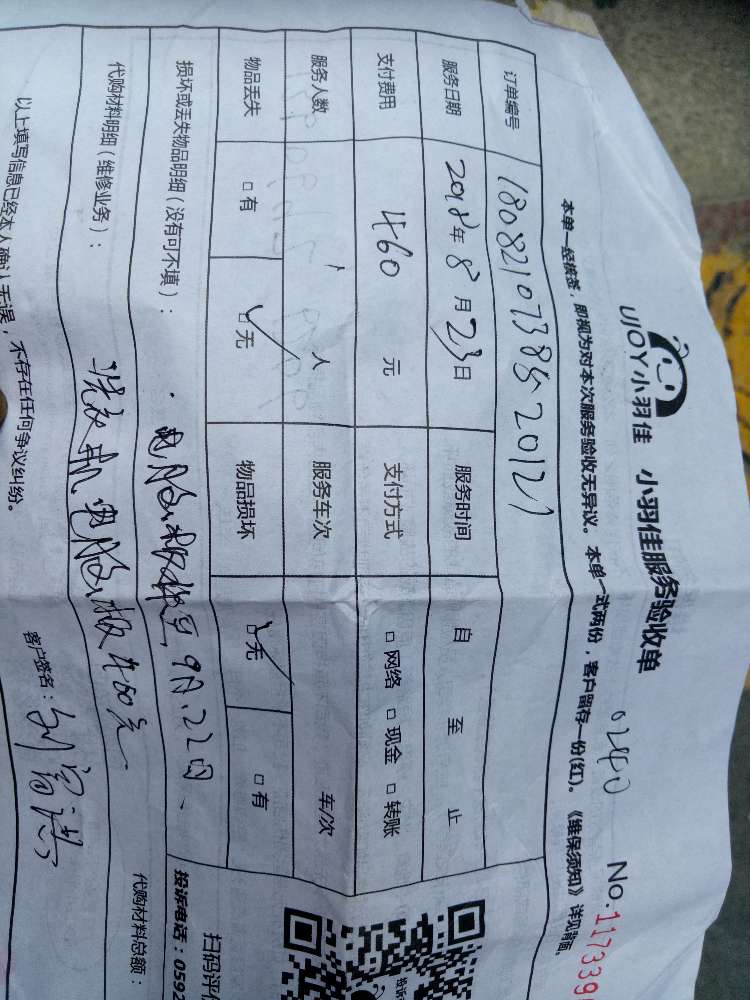 UJOY小羽佳 小羽佳服务验收单 0240 No.117339
本单一经核签，即视为对本次服务验收无异议。本单一式两份，客户留存一份(红)。《维保须知》详见背面。
订单编号
服务日期 2018年 8 月 23日 服务时间 自 至 止
支付费用 460 元 支付方式 □ 网络 □ 现金 □ 转账
服务人数 人 服务车次 车/次
物品丢失 □ 有 □ 无 物品损坏 □ 无 □ 有
损坏或丢失物品明细（没有可不填）： 9月.22日
代购材料明细（维修业务）： 洗衣机电脑板460元 代购材料总额：
以上填写信息已经本人确认无误，不存在任何争议纠纷。 客户签名：
扫码评价
投诉电话：0592